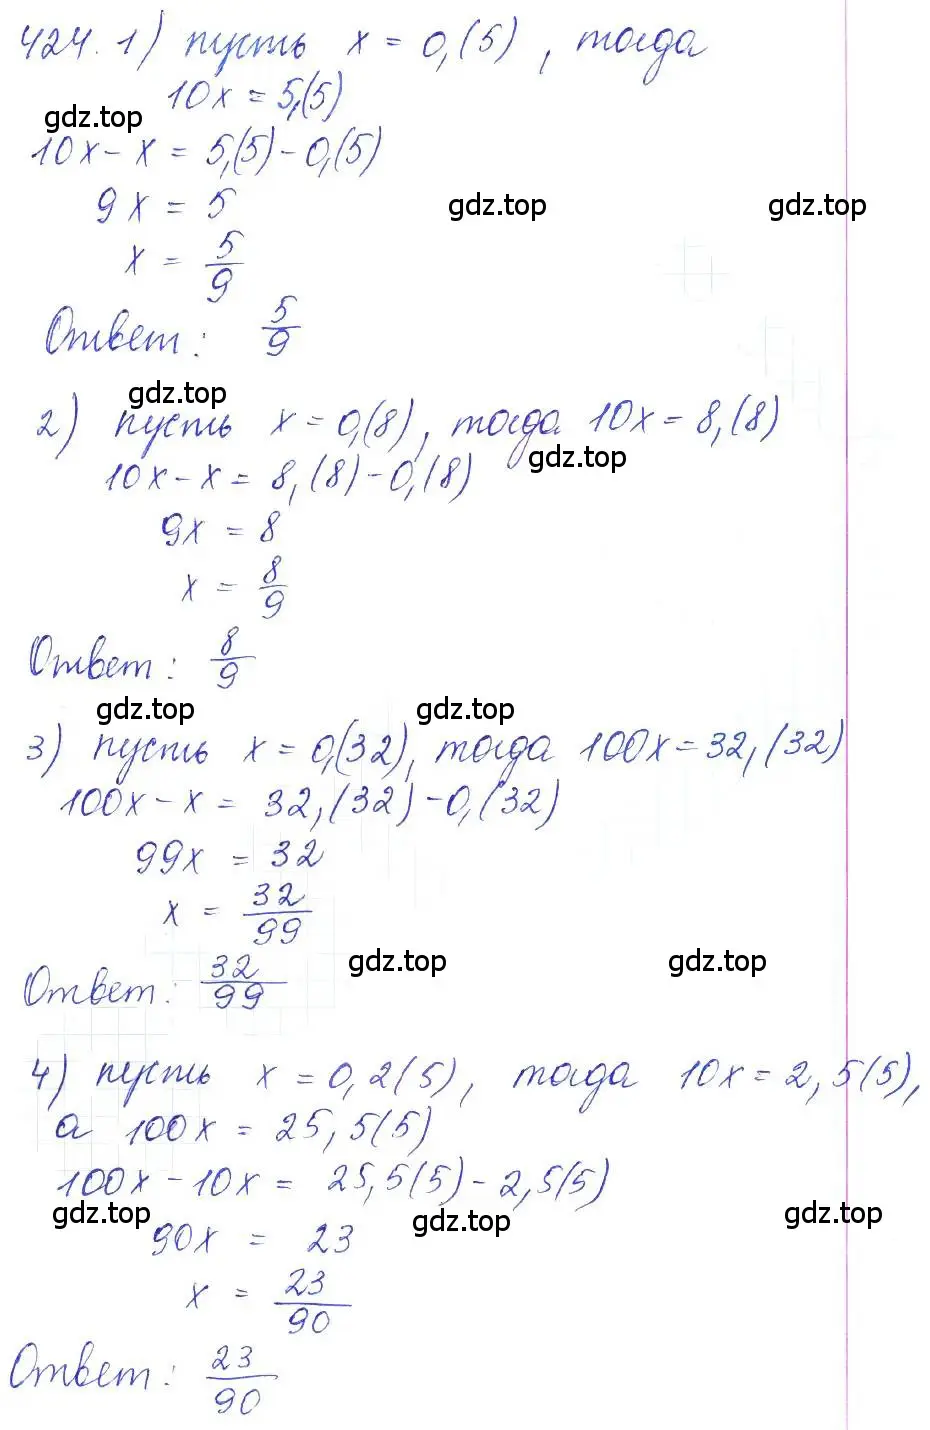 424. 1) пусть x = 0,(5), тогда
10x = 5,(5)
gdz.top
10x - x = 5,(5) - 0,(5)
9x = 5
gdz.top gdz.top
x = 5/9
Ответ: 5/9
gdz.top
2) пусть x = 0,(8), тогда 10x = 8,(8)
gdz.top
10x - x = 8,(8) - 0,(8)
9x = 8
x = 8/9
Ответ: 8/9
gdz.top gdz.top
3) пусть x = 0,(32), тогда 100x = 32,(32)
100x - x = 32,(32) - 0,(32)
99x = 32
x = 32/99
gdz.top gdz.top
Ответ: 32/99
4) пусть x = 0,2(5), тогда 10x = 2,5(5),
а 100x = 25,5(5)
100x - 10x = 25,5(5) - 2,5(5)
gdz.top gdz.top gdz.top
90x = 23
x = 23/90
Ответ: 23/90